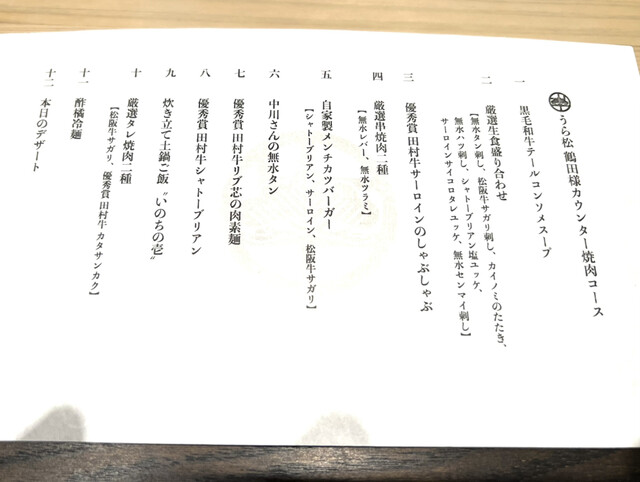 うら松 鶴田様カウンター焼肉コース
一 黒毛和牛テールコンソメスープ
二 厳選生食盛り合わせ
【無水タン刺し、松阪牛サガリ刺し、カイノミのたたき、
無水ハツ刺し、シャトーブリアン塩ユッケ、
サーロインサイコロタレユッケ、無水センマイ刺し】
三 優秀賞 田村牛サーロインのしゃぶしゃぶ
四 厳選串焼肉二種
【無水レバー、無水ツラミ】
五 自家製メンチカツバーガー
【シャトーブリアン、サーロイン、松阪牛サガリ】
六 中川さんの無水タン
七 優秀賞 田村牛リブ芯の肉素麺
八 優秀賞 田村牛シャトーブリアン
九 炊き立て土鍋ご飯〝いのちの壱〟
十 厳選タレ焼肉二種
【松阪牛サガリ、優秀賞 田村牛 カタサンカク】
十一 酢橘冷麺
十二 本日のデザート